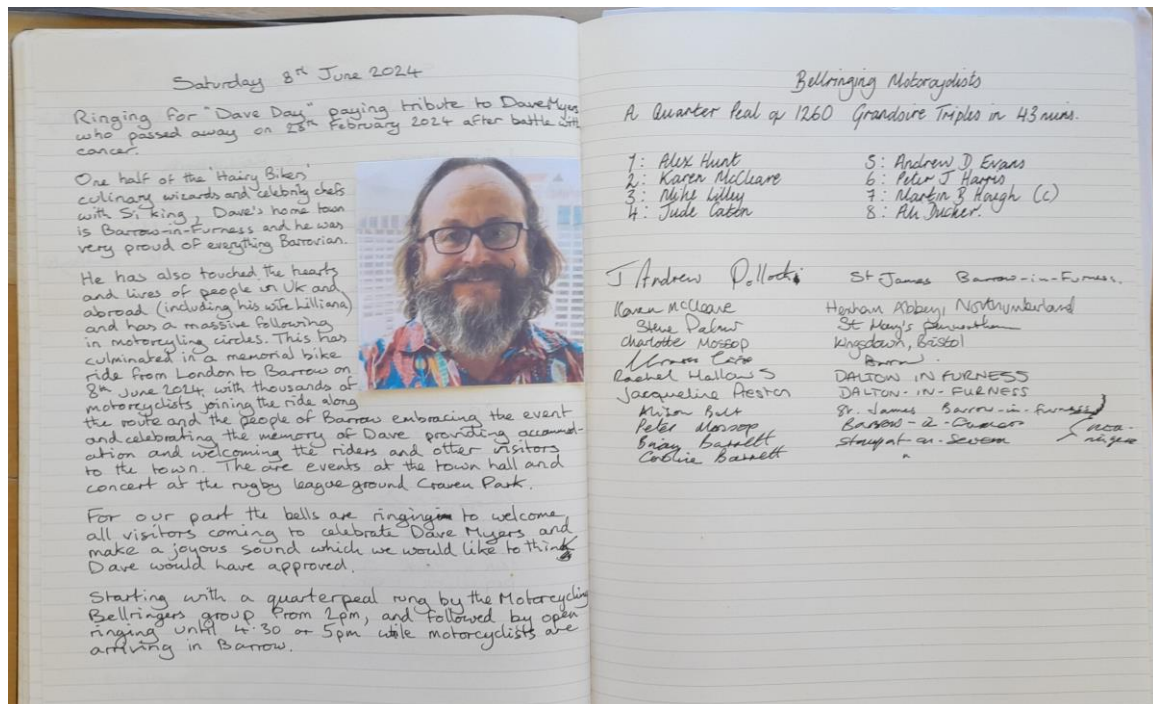 Saturday 8th June 2024
Ringing for "Dave Day" paying tribute to Dave Myers
who passed away on 28th February 2024 after battle with
cancer.
One half of the 'Hairy Bikers'
culinary wizards and celebrity chefs
with Si King, Dave's home town
is Barrow-in-Furness and he was
very proud of everything Barrovian.
He has also touched the hearts
and lives of people in UK and
abroad (including his wife Lilliana)
and has a massive following
in motorcyling circles. This has
culminated in a memorial bike
ride from London to Barrow on
8th June 2024 with thousands of
motorcyclists joining the ride along
the route and the people of Barrow embracing the event
and celebrating the memory of Dave providing accomod-
ation and welcoming the riders and other visitors
to the town. The are events at the town hall and
concert at the rugby league ground Craven Park.
For our part the bells are ringing to welcome
all visitors coming to celebrate Dave Myers and
make a joyous sound which we would like to think
Dave would have approved.
Starting with a quarterpeal rung by the Motorcycling
Bellringers group from 2pm, and followed by open
ringing until 4.30 or 5pm while motorcyclists are
arriving in Barrow.
Bellringing Motorcyclists
A Quarter Peal of 1260 Grandsire Triples in 43 mins.
1: Alex Hunt 5: Andrew D Evans
2: Karen McCleare 6: Peter J Harris
3: Mike Lilley 7: Martin B Hough (c)
4: Jude Caton 8: Ali Ducker.
J Andrew Pollock St James Barrow-in-Furness.
Karen McCleare Hexham Abbey, Northumberland
Steve St Mary's
Charlotte Mossop Kingsdown, Bristol
Barrow
Rachel Hallows DALTON IN FURNESS
Jacqueline DALTON-IN-FURNESS
Alison Bult St. James Barrow-in-Furness
Peter Mossop Barrow-in-Furness non-
Brian Barrett on-Severn ringers
Caroline Barrett "